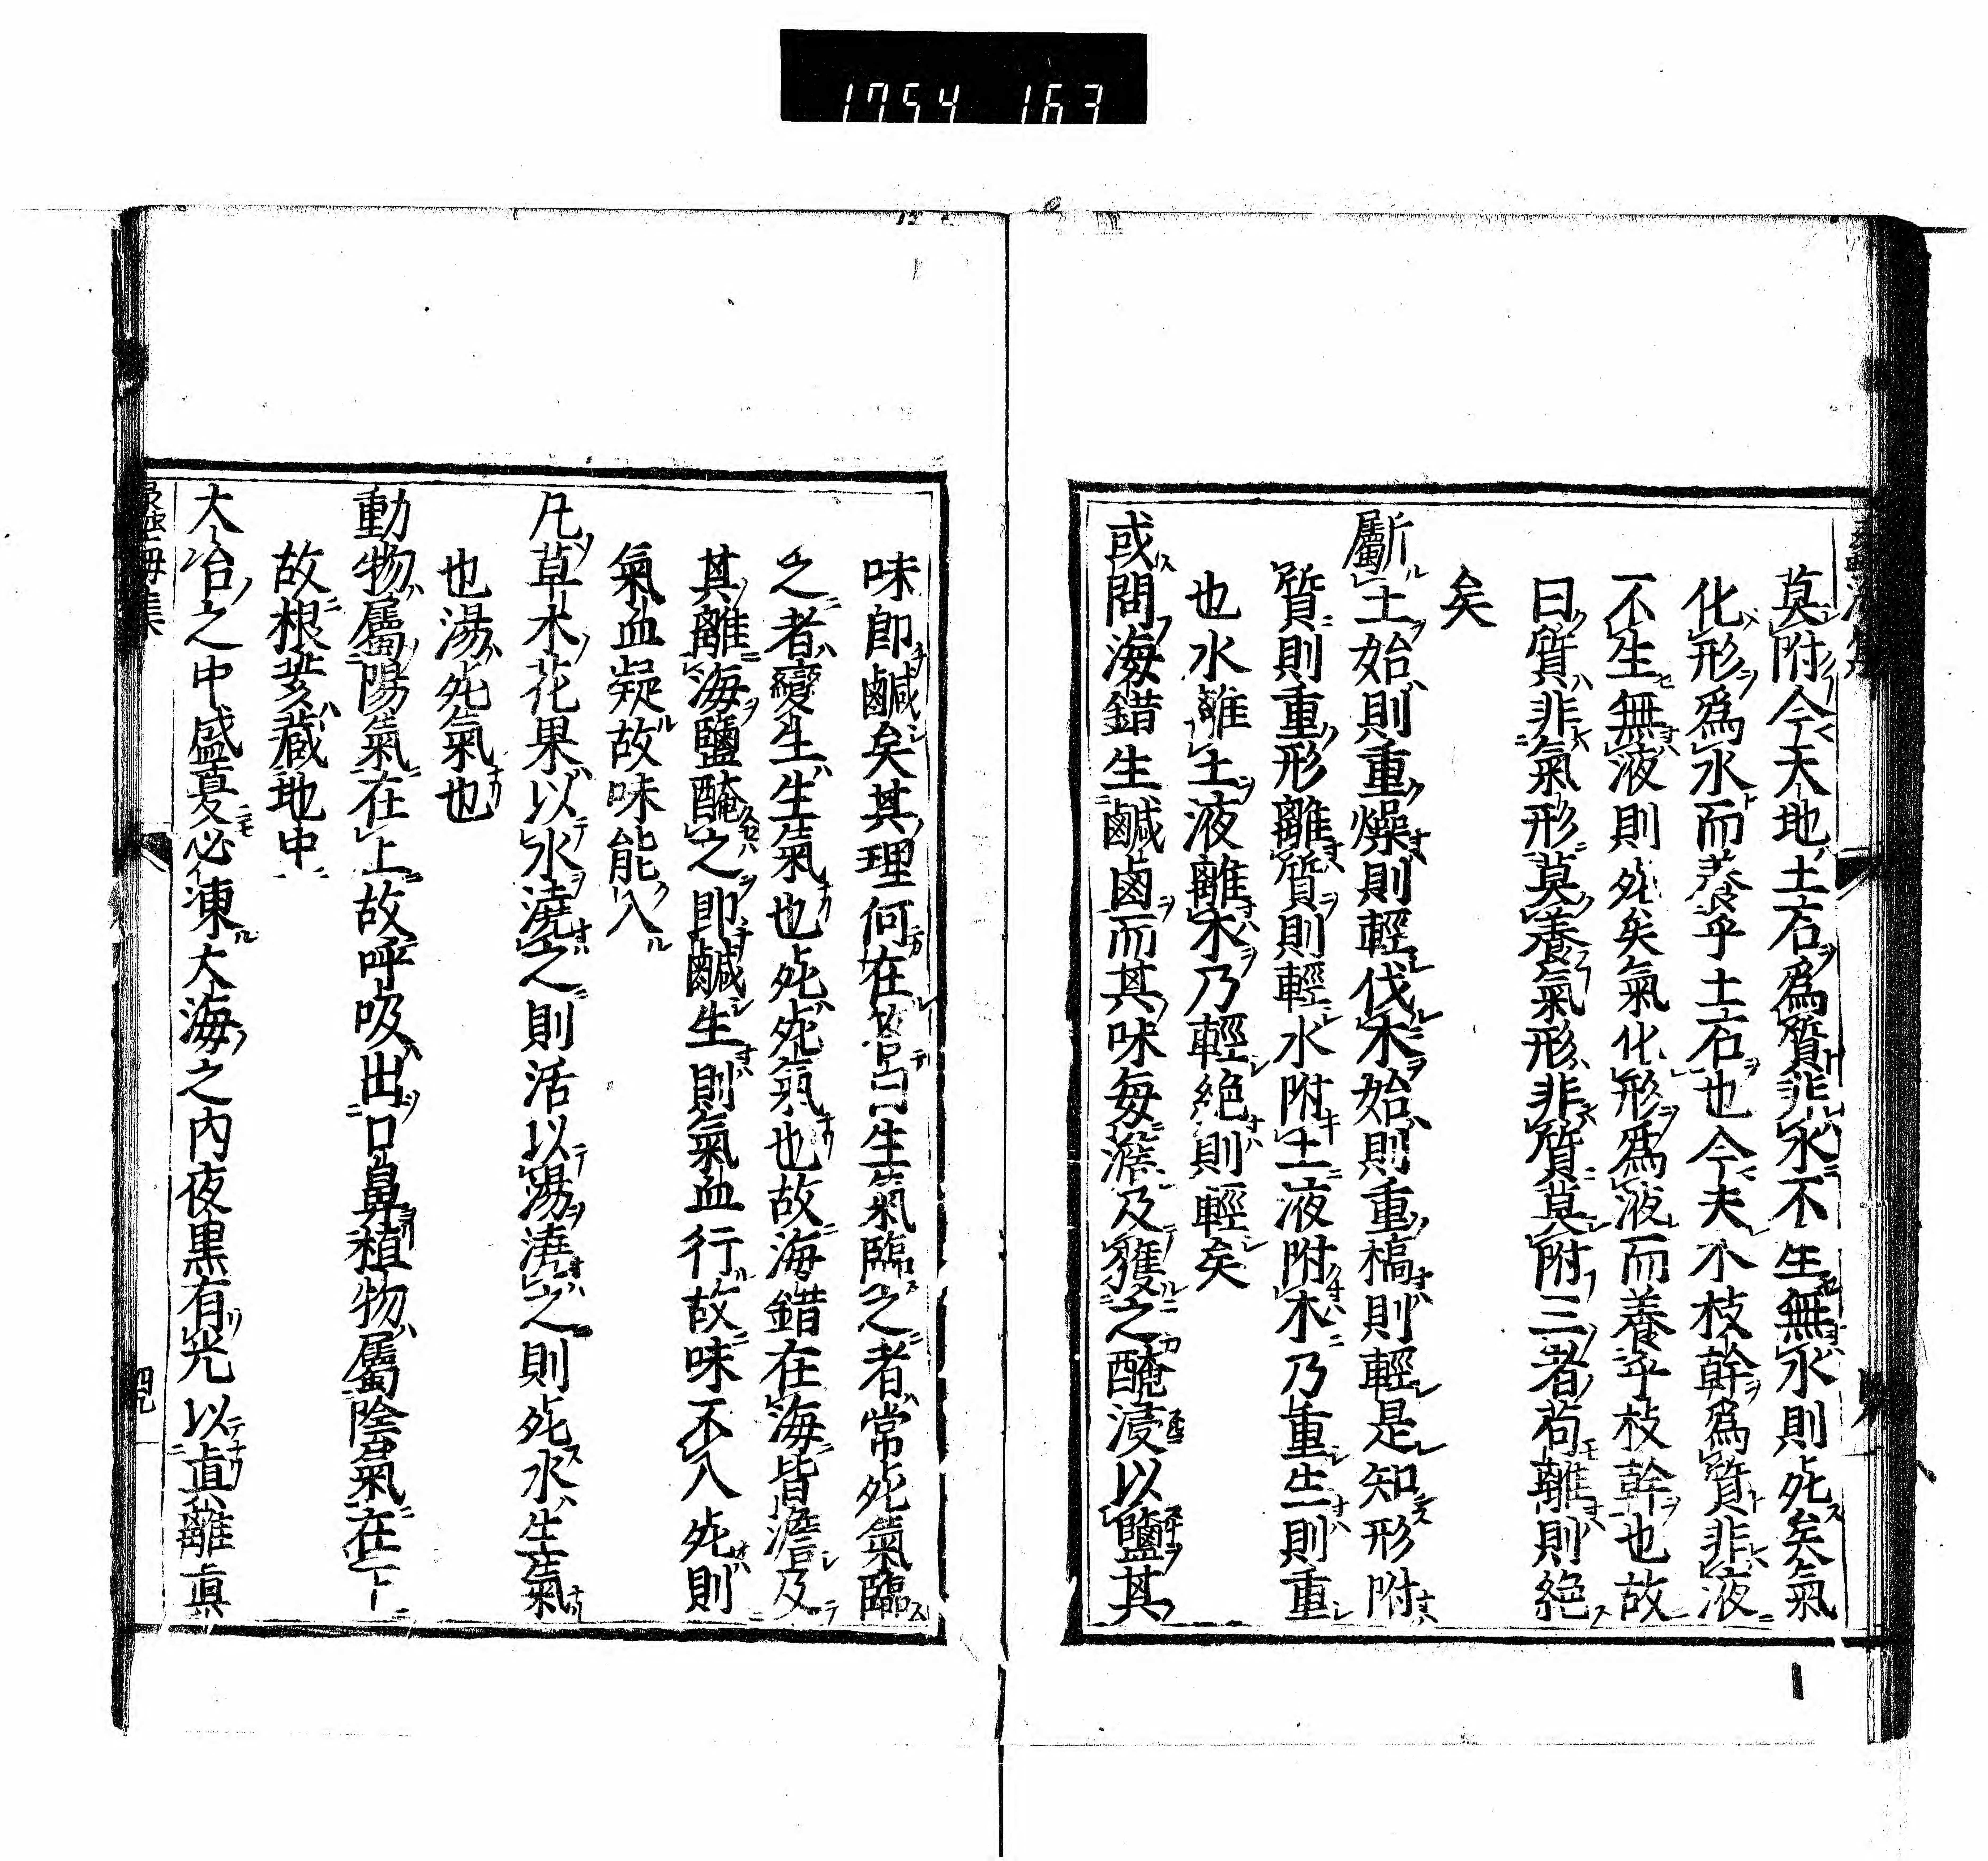 1754 163
莫附今夫地土石爲質非水不生無水則死矣氣
化形爲水而養乎土石也今夫木枝幹爲質非液
不生無液則死矣氣化形爲液而養乎枝幹也故
曰質非氣形莫養氣形非質莫附三者苟離則絶
矣
斸土始則重燥則輕伐木始則重槁則輕是知形附
質則重形離質則輕水附土液附木乃重生則重
也水離土液離木乃輕絶則輕矣
或問海錯生鹹鹵而其味毎澹及獲之醃浸以鹽其
味卽鹹矣其理何在答曰生氣臨之者常死氣臨
之者變生生氣也死死氣也故海錯在海皆澹及
其離海鹽醃之卽鹹生則氣血行故味不入死則
氣血凝故味能入
凡草木花果以水澆之則活以湯澆之則死水生氣
也湯死氣也
動物屬陽氣在上故呼吸出口鼻植物屬陰氣在下
故根荄藏地中
大冶之中盛夏必凍大海之內夜黒有光以眞離眞
四九